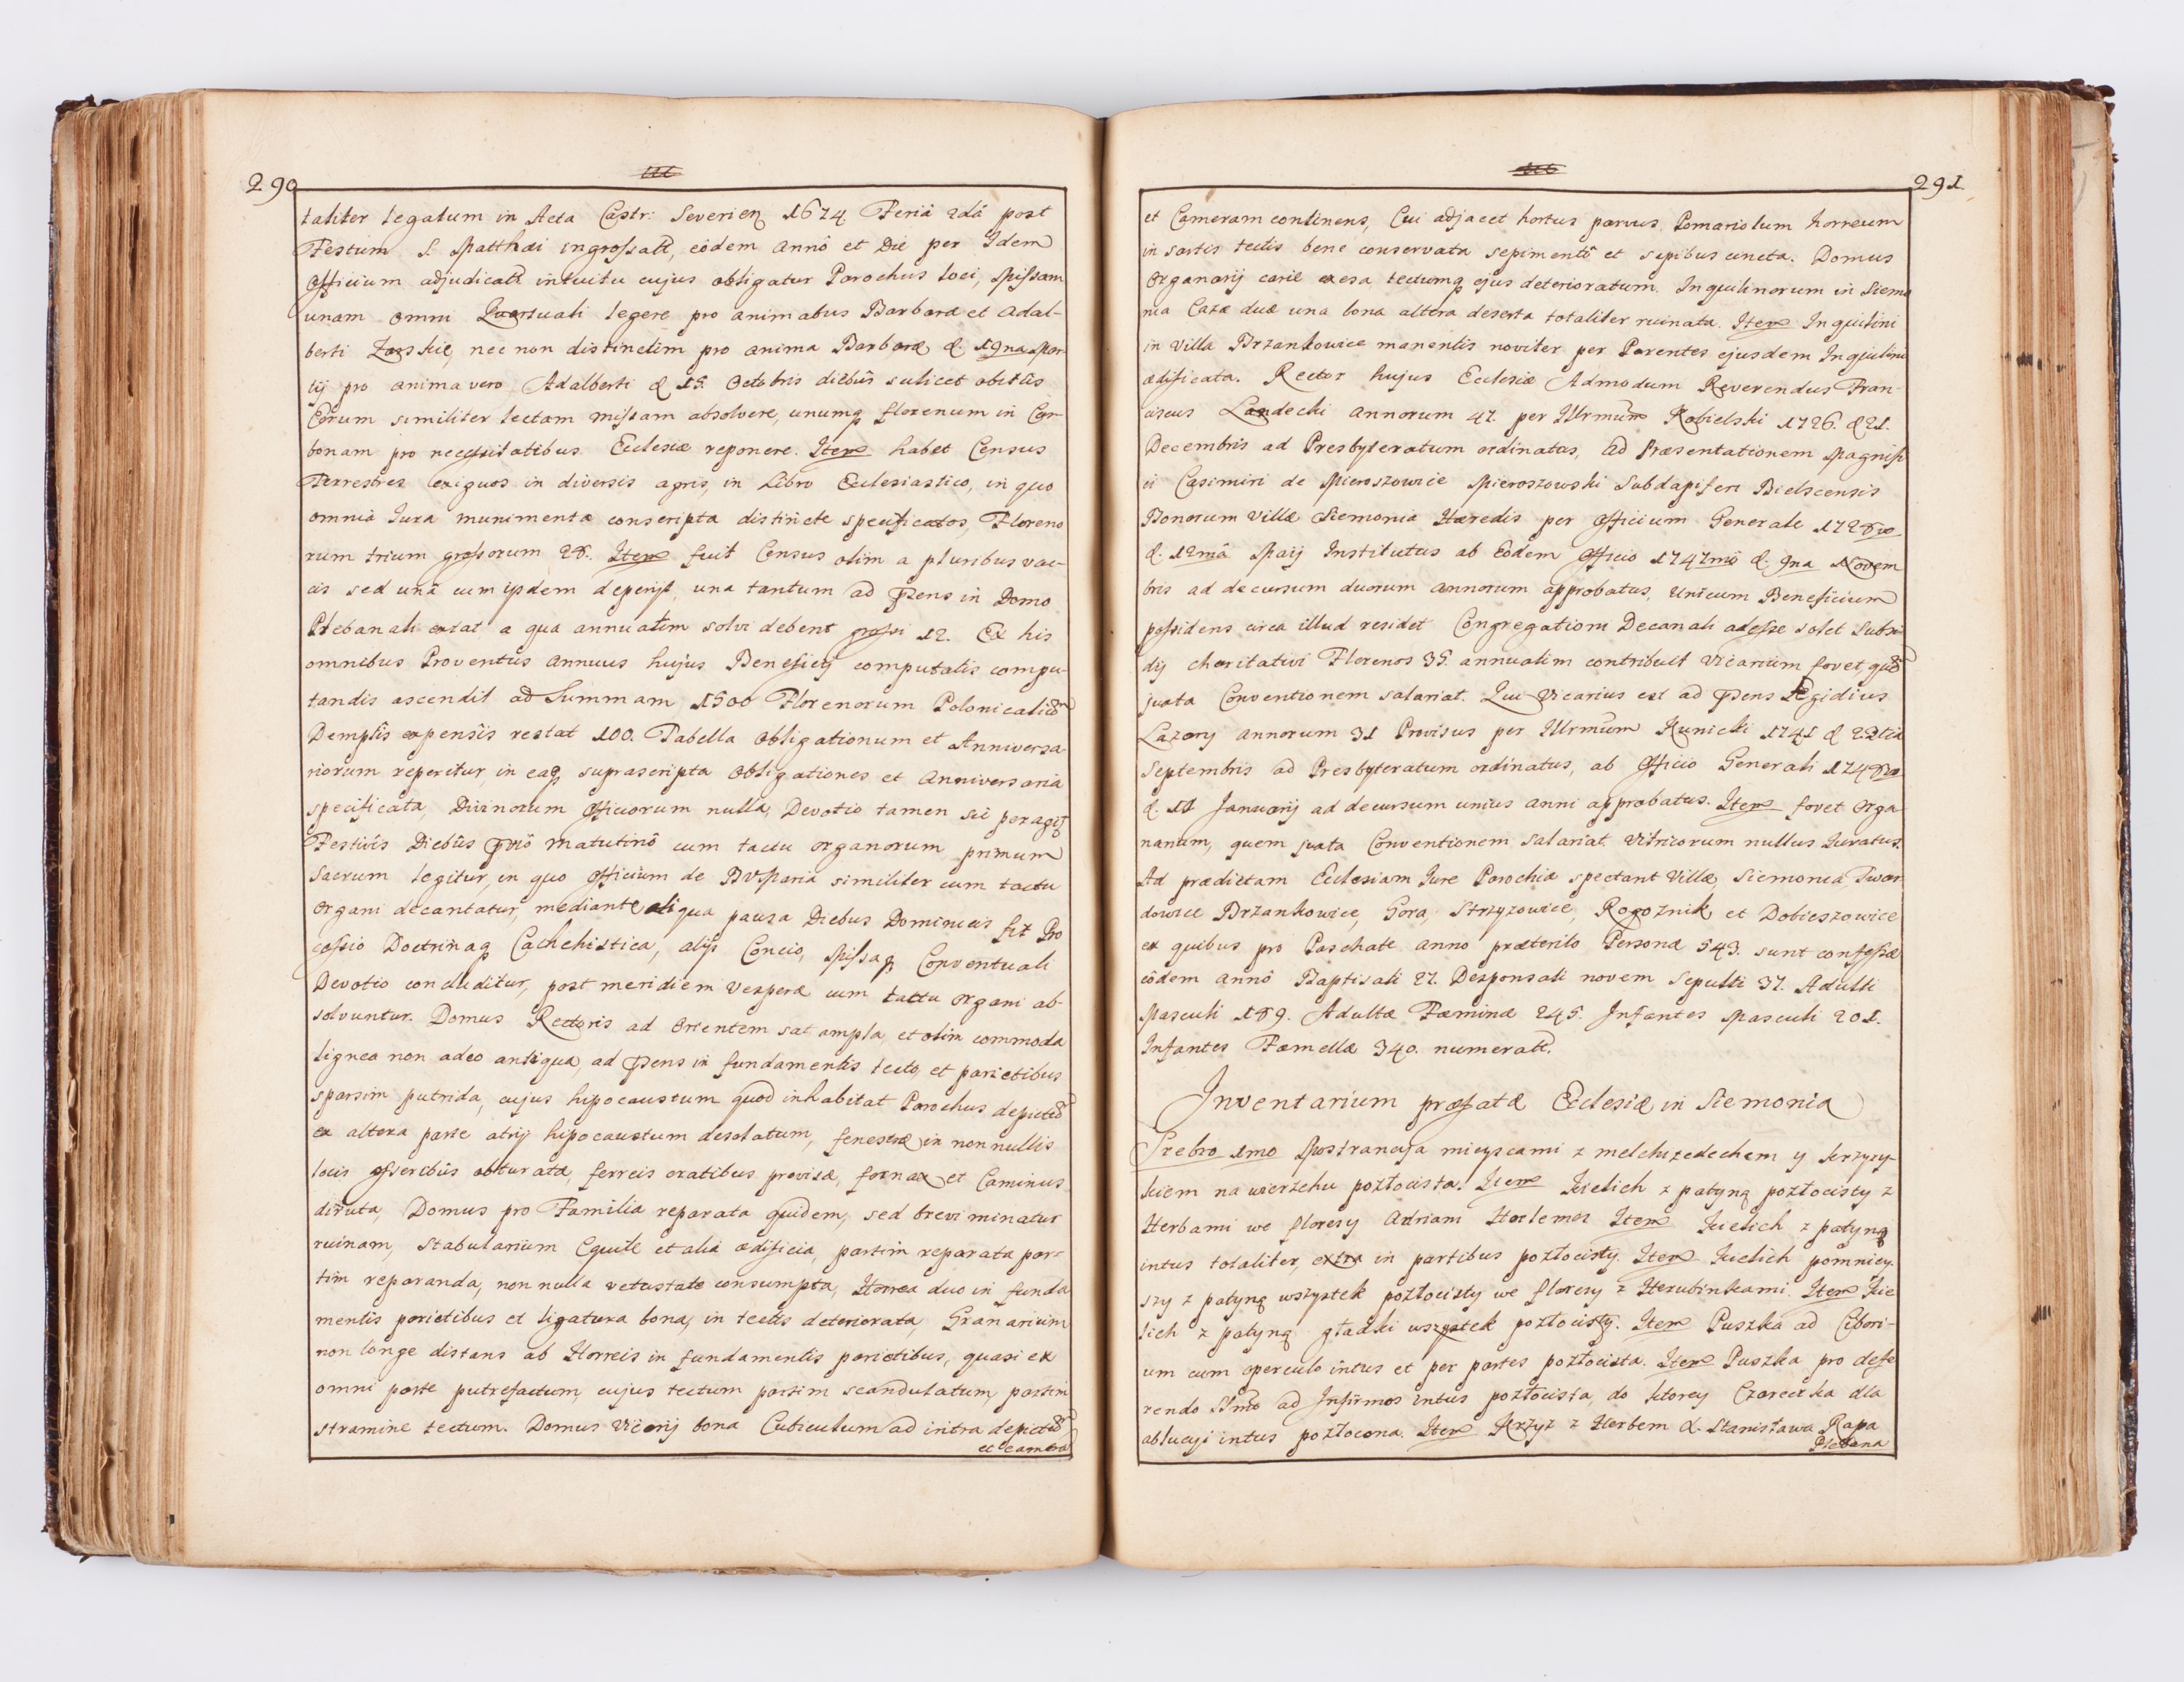 290
taliter legatum in Acta Castr: Severien 1674 Feriâ 2dâ post
Festum S. Matthæi ingrossat, eôdem annô et Die per Idem
Officium adjudicat intuitu cujus obligatur Parochus loci, Missam
unam omni Quartuali legere pro animabus Barbaræ et Adal-
berti nec non distinctim pro anima Barbaræ d. 19na Mar-
tij pro anima vero Adalberti d 15. Octobris diebûs scilicet obitûs
Eorum similiter lectam missam absolvere, unumq florenum in Car-
bonam pro necessitatibus Ecclesiæ reponere. Item habet Census
Terrestres exiguos in diversis agris, in Libro Ecclesiastico, in quo
omnia Jura munimenta conscripta distincte specificatos, Floreno
rum trium grossorum 28. Item fuit Census olim a pluribus vac-
cis sed unâ cum ijsdem deperijt, una tantum ad Pens in Domo
Plebanali extat a qua annuatim solvi debent grossi 12. Ex his
omnibus Proventûs annuus hujus Beneficij computatis compu-
tandis ascendit ad Summam 1500 Florenorum Polonicaliu
Demptis expensis restat 100. Tabella obligationum et Anniversa-
riorum reperitur, in eaq suprascripta Obligationes et Anniversaria
specificata, Divinorum Officiorum nulla, Devotio tamen sic peragit
Festivis Diebûs matutinô cum tactu organorum primum
Sacrum legitur, in quo Officium de BVMaria similiter cum tactu
Organi decantatur, mediante aliqua pausa Diebus Dominicis fit Pro
cessio Doctrinaq Cathehistica, alijs Concio, Missaq Conventuali
Devotio concluditur, post meridiem Vesperæ cum tactu organi ab-
solvuntur. Domus Rectoris ad Orientem sat ampla, et olim commoda
lignea non adeo antiqua, ad Pens in fundamentis tecto, et parietibus
sparsim putrida, cujus hipocaustum quod inhabitat Parochus depictu
ex altera parte atrij hipocaustum desolatum, fenestræ in nonnullis
locis asseribûs obturatæ, ferreis cratibus provisæ, fornax et Caminus
diruta, Domus pro Familia reparata quidem, sed brevi minatur
ruinam, Stabularium Equile et alia ædificia, partim reparata par-
tim reparanda, non nulla vetustate consumpta, Horrea duo in funda
mentis parietibus et ligatura bona, in tectis deteriorata, Granarium
non longe distans ab Horreis in fundamentis parietibus, quasi ex
omni parte putrefactum, cujus tectum partim scandulatum, partim
stramine tectum. Domus Vicarij bona Cubiculum ad intra depictu
et camera
291
et Cameram continens, Cui adjacet hortus parvus Pomariolum horreum
in sartis tectis bene conservata sepimentô et sepibus cincta. Domus
Organarij carie exesa tectumq ejus deterioratum. Inquilinorum in Siemo
nia Casæ duæ una bona altera deserta totaliter ruinata. Item Inquilini
in Villa Brzankowice manentis noviter per Parentes ejusdem Inquilini
ædificata. Rector hujus Ecclesiæ Admodum Reverendus Fran-
ciscus Landecki annorum 47. per Illrmum Kobielski 1726. d 21.
Decembris ad Presbyteratum ordinatus, ad Præsentationem Magnifi
ci Casimiri de Mieroszowice Mieroszowski Subdapiferi Bielscensis
Bonorum Villæ Siemonia Hæredis per Officium Generale 1728vo
d. 12mâ Maij Institutus ab Eôdem Officio 1747mô d. 9na Novem
bris ad decursum duorum annorum approbatus, Unicum Beneficium
possidens circa illud residet Congregationi Decanali adesse solet Subsi
dij charitativi Florenos 35. annuatim contribuit Vicarium fovet que
juxta Conventionem salariat. Qui Vicarius est ad Pens Ægidius
Lazary annorum 31 Provisus per Illrmum Kunicki 1741 d 23tia
Septembris ad Presbyteratum ordinatus, ab Officio Generali 1748vo
d. 11 Januarij ad decursum unius anni approbatus. Item fovet Orga-
narium, quem juxta Conventionem salariat. Vitricorum nullus Juratus.
Ad prædictam Ecclesiam Jure Parochiæ spectant Villæ, Siemonia, Twar
dowice Brzankowice, Gora, Strzyzowice, Rogoznik et Dobieszowice
ex quibus pro Paschate anno præterito Personæ 543. sunt confessæ
eôdem annô Baptisati 27. Desponsati novem Sepulti 37. Adulti
Masculi 189. Adultæ Fæminæ 245. Infantes Masculi 201.
Infantes Fæmellæ 340. numerati.
Inventarium præfatæ Ecclesiæ in Siemonia
Srebro 1mo Mostrancyja mieyscami z melchizedechem y krzyzy-
kiem na wierzchu pozłocista. Item Kielich z patyną pozłocisty z
Herbami we floresy Adriani Item Kielich z patyną
intus totaliter, extra in partibus pozłocisty. Item Kielich pomniey-
szy z patyną wszystek pozłocisty we floresy z Herubinkami. Item Kie
lich z patyną gładki wszystek pozłocisty. Item Puszka ad Cibori-
um cum operculo intus et per partes pozłocista. Item Puszka pro defe
rendo SSmo ad Infirmos intus pozłocista, do ktorey Czareczka dla
ablucyi intus pozłocona. Item Krzyz z Herbem X. Stanisława Rapa
Plebana